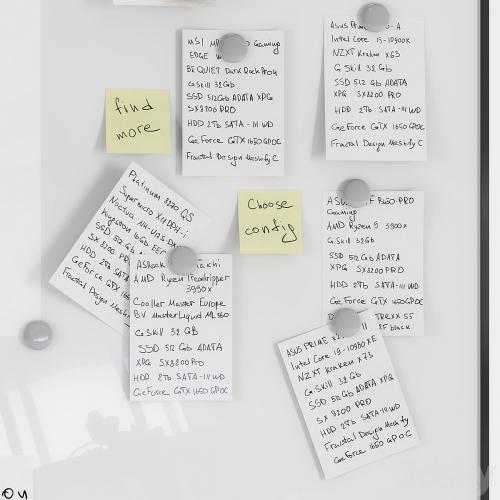 MSI Gaming
EDGE
BE QUIET Dark Rock Pro 4
G.Skill 32 Gb
SSD 512Gb ADATA XPG
SX8200 PRO
HDD 2Tb SATA-III WD
GeForce GTX 1650 GPOC
Fractal Design Meshify C
Asus Prime -A
Intel Core i9-10900K
NZXT Kraken X63
G.Skill 32 Gb
SSD 512 Gb ADATA
XPG SX8200 PRO
HDD 2Tb SATA-III WD
GeForce GTX 1650 GPOC
Fractal Design Meshify C
find
more
Choose
config
Platinum 8270 QS
Supermicro X11DPH-i
Noctua
Kingston 16Gb
SSD 512 Gb
SX8200 PRO
HDD 2Tb SAT
GeForce GTX
Fractal Design Mesh
ASRock Taichi
AMD Ryzen Threadripper
3990x
Cooller Master Europe
BV MasterLiquid ML360
G.Skill 32 GB
SSD 512 Gb ADATA
XPG SX8200 Pro
HDD 2Tb SATA-III WD
GeForce GTX 1650 GPOC
ASUS B450-PRO
Gaming
AMD Ryzen 9 3900x
G.Skill 32Gb
SSD 512 Gb ADATA
XPG SX8200 PRO
HDD 2Tb SATA-III WD
GeForce GTX 1650 GPOC
black
ASUS PRIME II
Intel Core i9-10980XE
NZXT Kraken X73
G.Skill 32 Gb
SSD 512 Gb ADATA XPG
SX 8200 PRO
HDD 2Tb SATA-III WD
Fractal Design Meshify
GeForce GTX 1650 GPOC